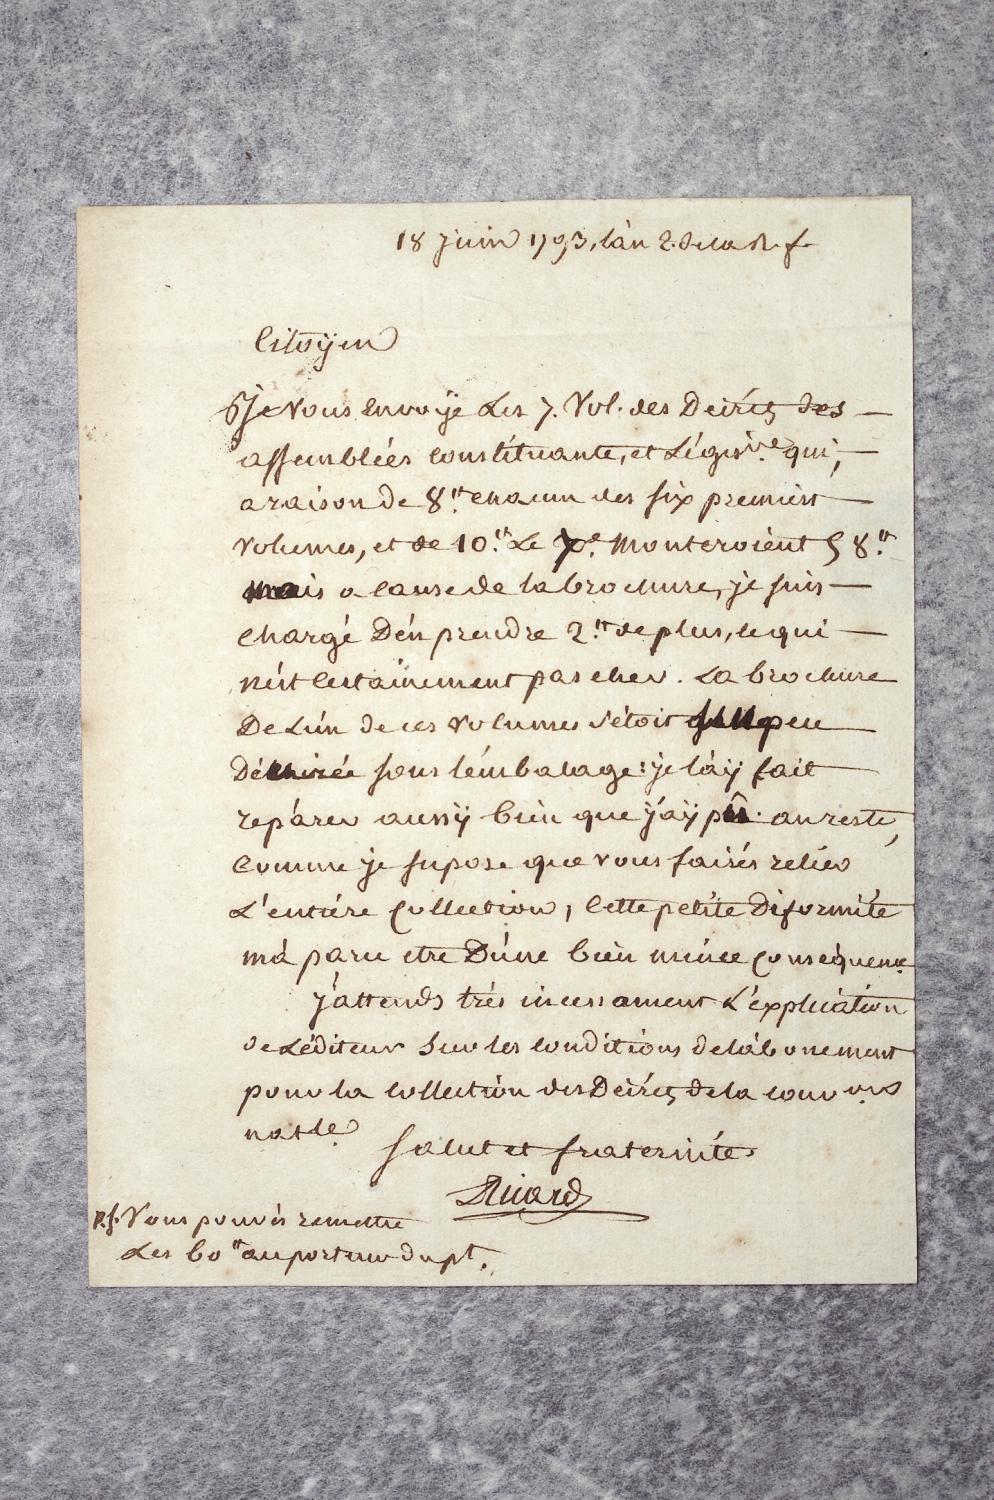 18 juin 1793, l'an 2. de la R. f.
Citoÿen
Je vous envoÿe Les 7. vol. des Décrets des
assemblées constituante, et Légis.ve qui,
a raison de 8.tt chacun des six premiers
volumes, et de 10.tt Le 7.e monteroient 58.tt
mais a cause de la brochure, je suis
chargé d'en prendre 2.tt de plus, ce qui
n'est certainement pas cher. La brochure
De L'un de ces volumes s'étoit peu
Déchirée sous l'embalage: je l'aÿ fait
reparer aussÿ bien que j'aÿ pû. au reste,
comme je supose que vous faisés relier
L'entiére Collection, cette petite Diformité
m'a paru etre D'une bien mince Conséquence
j'attends trés incessament L'explication
de L'éditeur sur les conditions de l'abonement
pour la collection des Décrets de la conv.on
nat.le
Salut et fraternité
Ricard
P.S. Vous pouvés remettre
Les 60tt au porteur du pt.